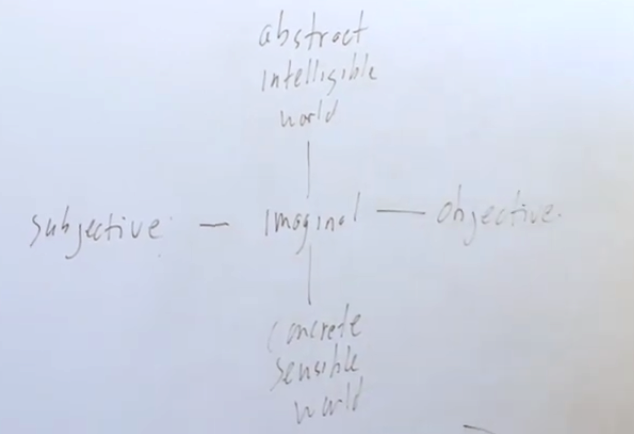 abstract
intelligible
world
subjective — imaginal — objective
concrete
sensible
world